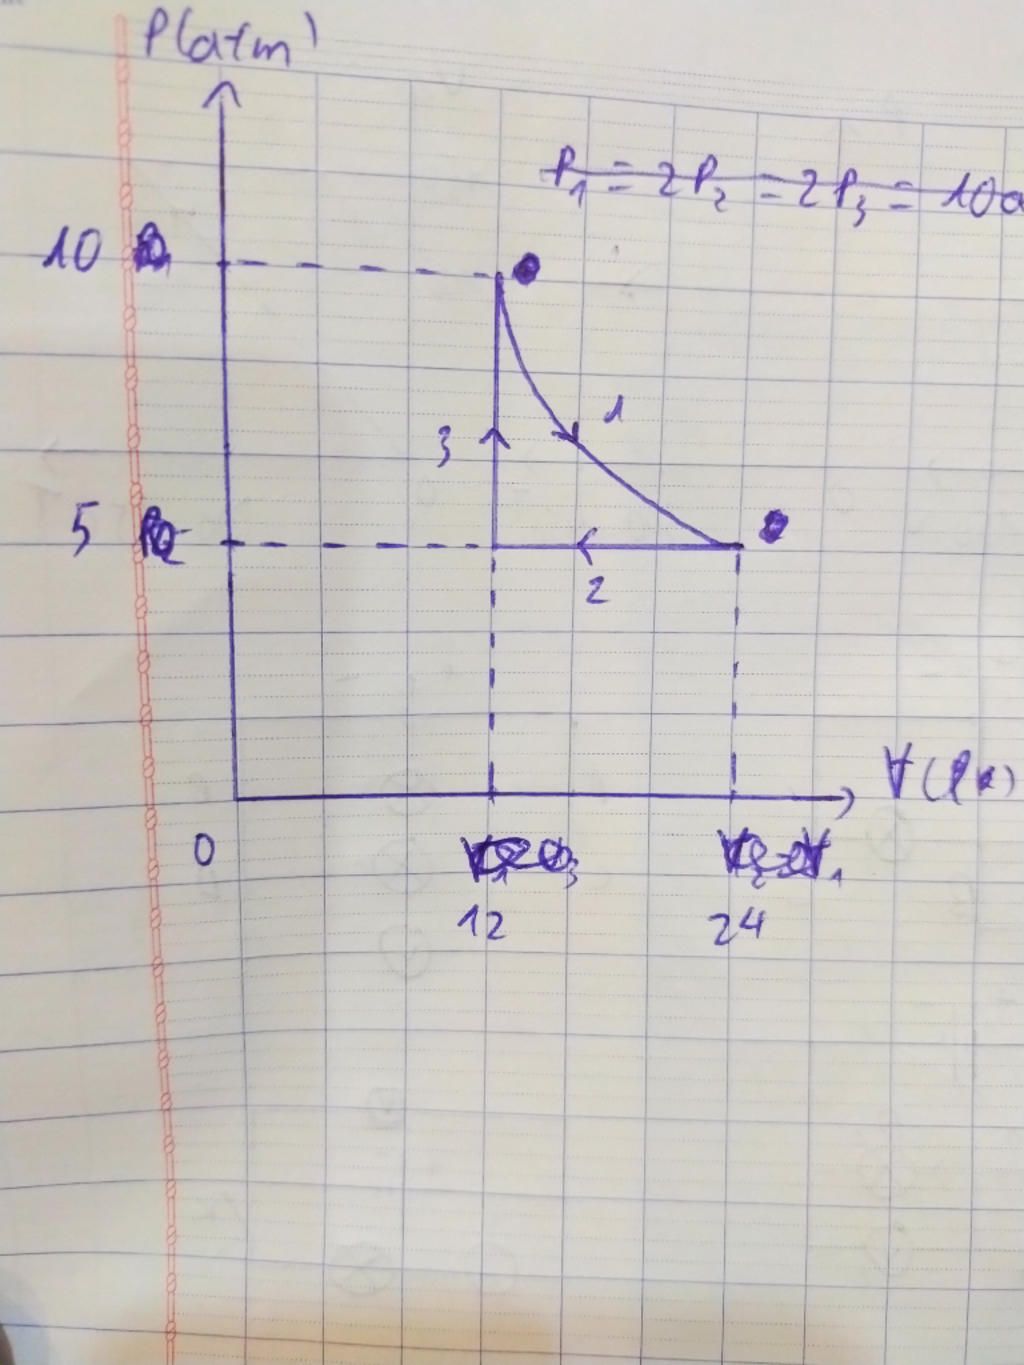 P(atm)
P₁ = 2P₂ = 2P₃ = 10a
10
1
3
5
2
V(l)
0
12
24